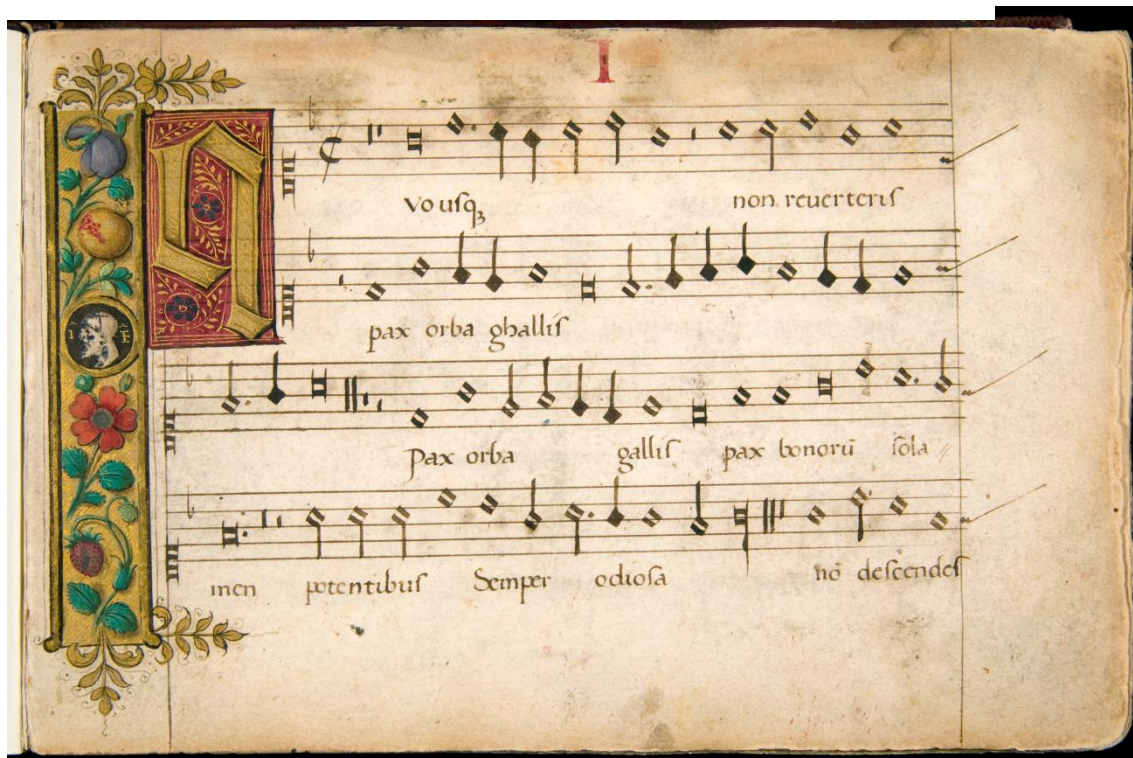 I
Q vouſqꝫ non reuerteriſ
pax orba ghalliſ
Pax orba galliſ pax bonorū ſola
men potentibuſ Semper odioſa nō deſcendeſ